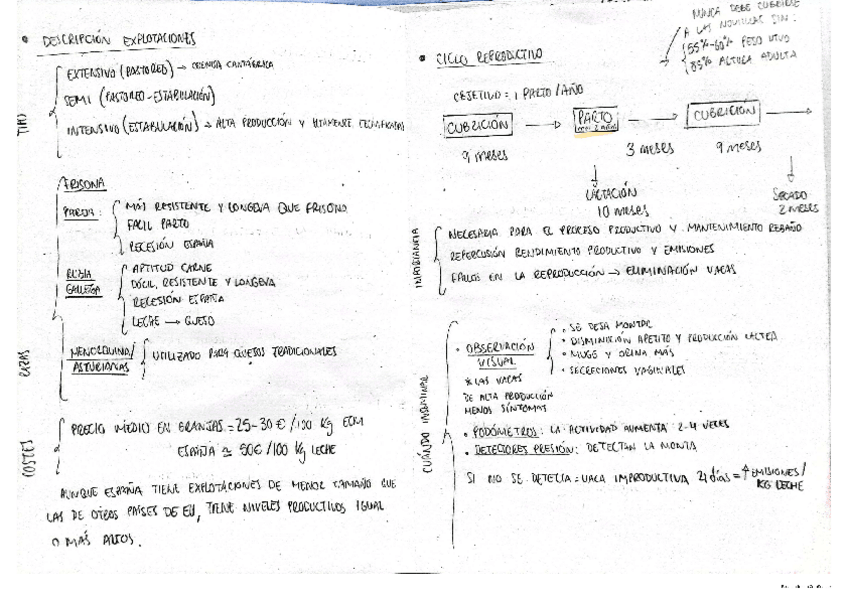 • DESCRIPCIÓN EXPLOTACIONES
TIPO
EXTENSIVO (PASTOREO) → CORNISA CANTÁBRICA
SEMI (PASTOREO-ESTABULACIÓN)
INTENSIVO (ESTABULACIÓN) → ALTA PRODUCCIÓN Y ALTAMENTE TECNIFICADAS
RAZAS
FRISONA
PARDA:
MÁS RESISTENTE Y LONGEVA QUE FRISONA
FACIL PARTO
RECESIÓN ESPAÑA
RUBIA
GALLEGA
APTITUD CARNE
DÓCIL, RESISTENTE Y LONGEVA
RECESIÓN ESPAÑA
LECHE → QUESO
MENORQUINA/
ASTURIANAS
UTILIZADO PARA QUESOS TRADICIONALES
COSTES
PRECIO MEDIO EN GRANJAS = 25-30 € /100 Kg ECM
ESPAÑA ≃ 50€ /100 Kg LECHE
AUNQUE ESPAÑA TIENE EXPLOTACIONES DE MENOR TAMAÑO QUE
LAS DE OTROS PAÍSES DE EU, TIENE NIVELES PRODUCTIVOS IGUAL
O MÁS ALTOS.
• CICLO REPRODUCTIVO
NUNCA DEBE CUBRIRSE
A LAS NOVILLAS SIN:
55%-60% PESO VIVO
85% ALTURA ADULTA
OBJETIVO = 1 PARTO / AÑO
CUBRICIÓN → PARTO → CUBRICIÓN →
2 AÑOS
9 MESES 3 MESES 9 MESES
LACTACIÓN
10 MESES
SECADO
2 MESES
IMPORTANCIA
NECESARIA PARA EL PROCESO PRODUCTIVO Y MANTENIMIENTO REBAÑO
REPERCUSIÓN RENDIMIENTO PRODUCTIVO Y EMISIONES
FALLOS EN LA REPRODUCCIÓN → ELIMINACIÓN VACAS
CUÁNDO INSEMINAR
• OBSERVACIÓN
VISUAL
* LAS VACAS
DE ALTA PRODUCCIÓN
MENOS SÍNTOMAS
• SE DEJA MONTAR
• DISMINUCIÓN APETITO Y PRODUCCIÓN LÁCTEA
• MUGE Y ORINA MÁS
• SECRECIONES VAGINALES
• PODÓMETROS: LA ACTIVIDAD AUMENTA: 2-4 VECES
• DETECTORES PRESIÓN: DETECTAN LA MONTA
SI NO SE DETECTA = VACA IMPRODUCTIVA 21 días = ↑ EMISIONES /
KG LECHE